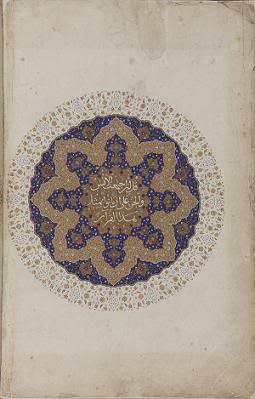 قل لئن اجتمعت الانس
والجن على ان ياتوا بمثل
هذا القرآن